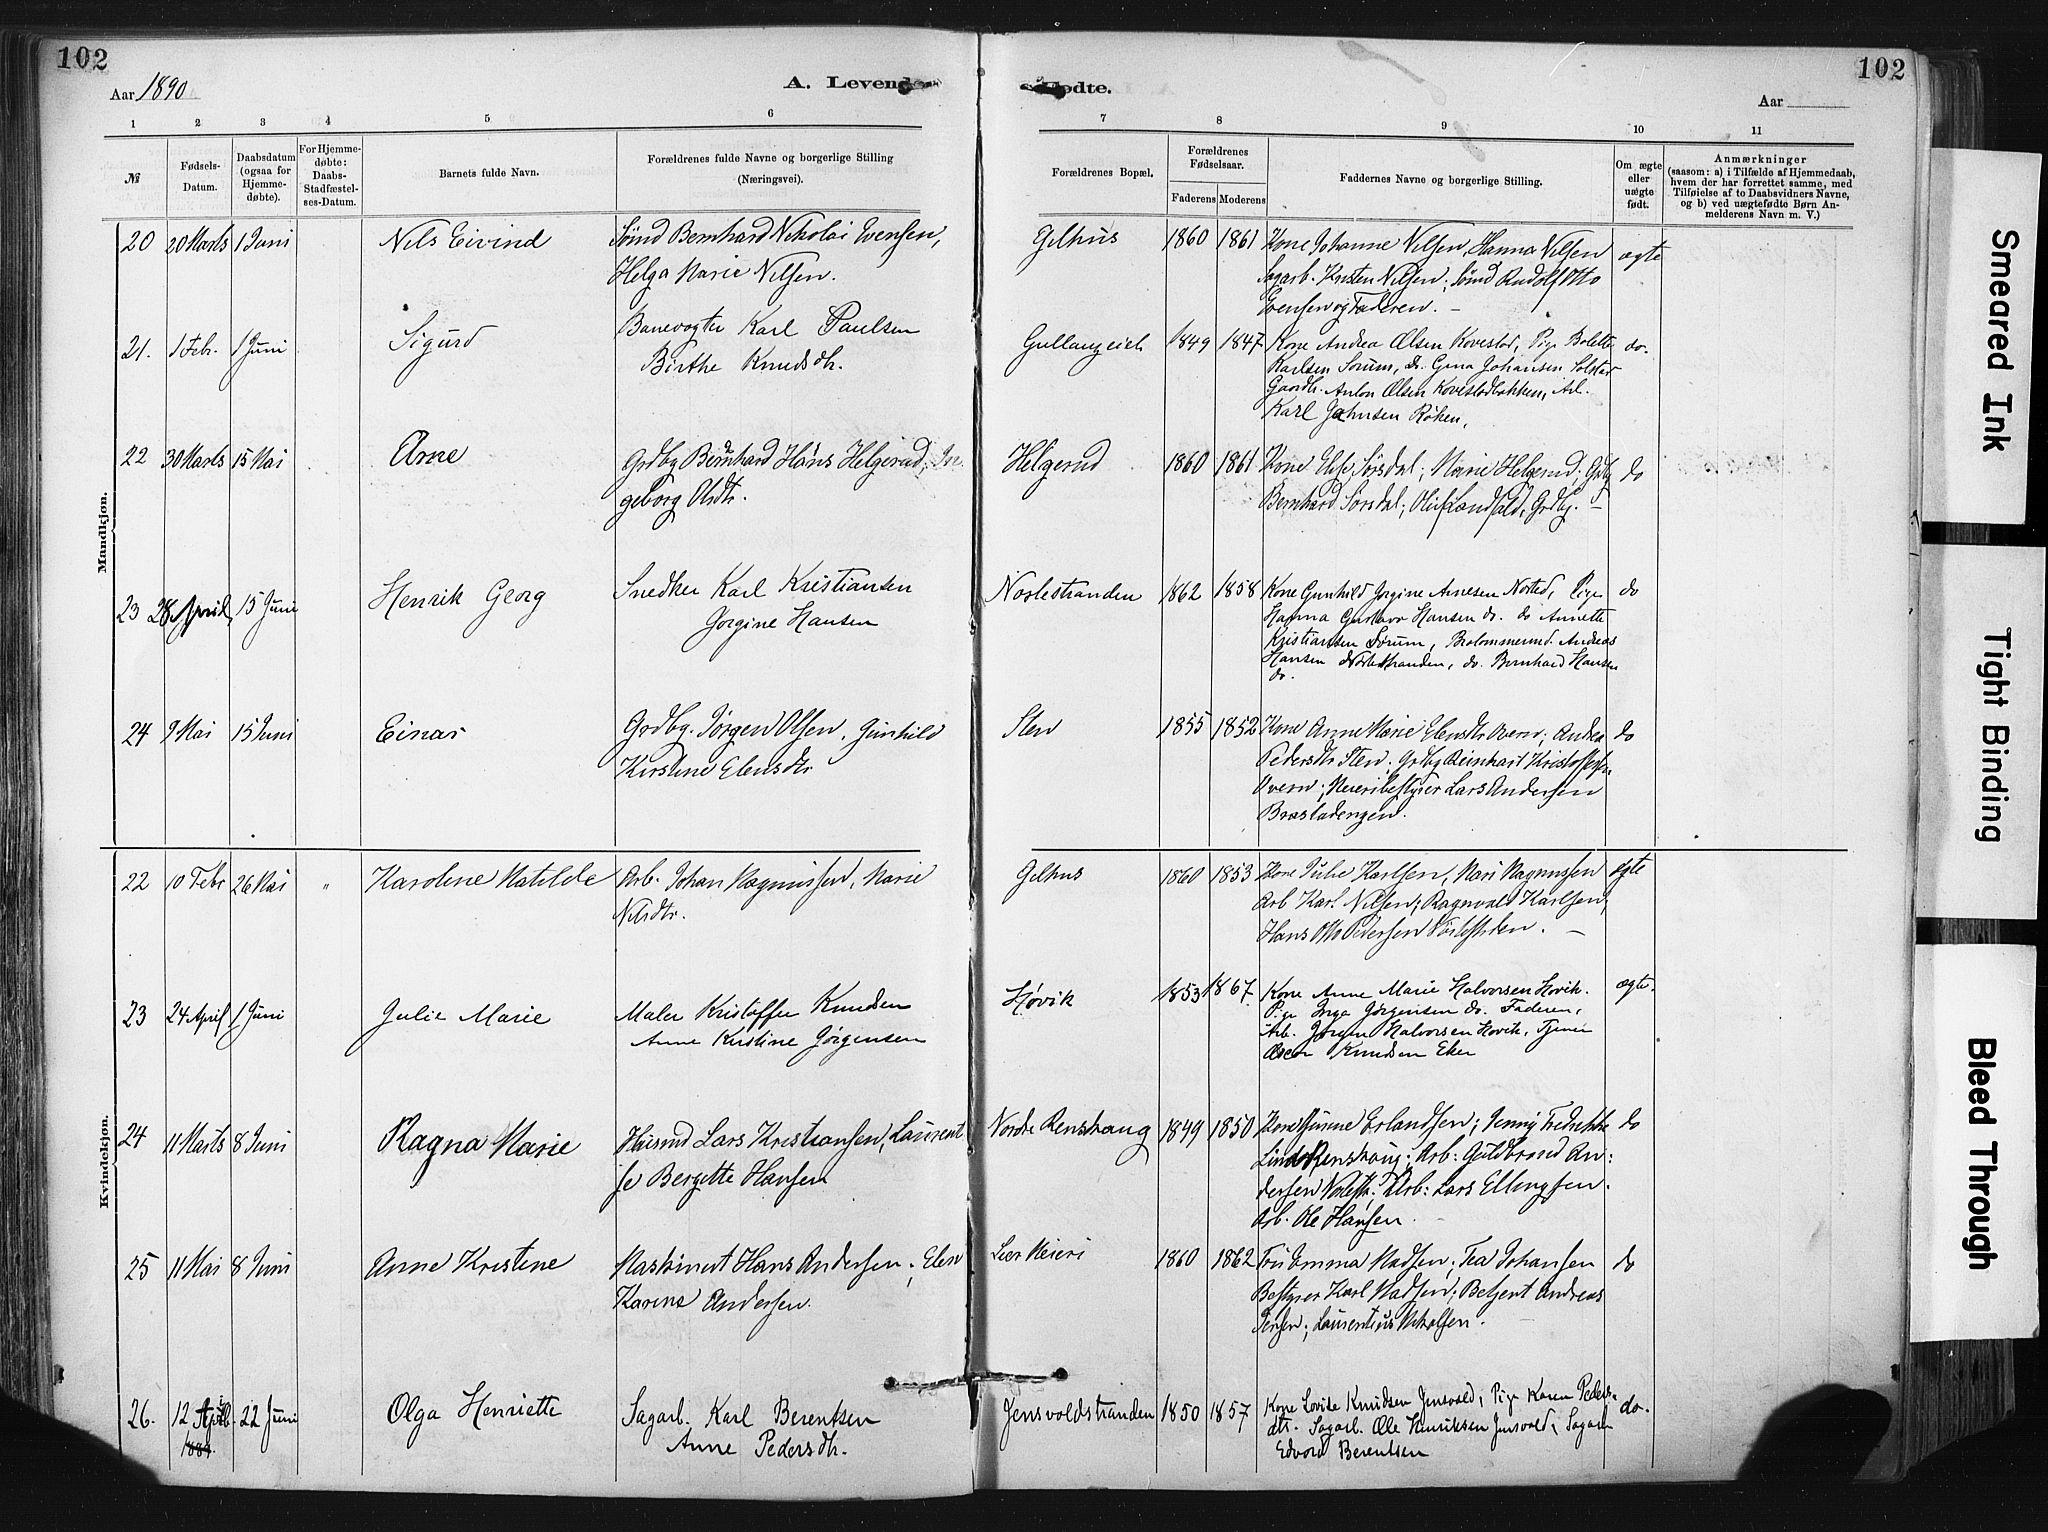 102
Aar 1890
A. Levende
Fødte.
102
Aar
1 2 3 4 5 6 7 8 9 10 11
№
Fødsels-
Datum.
Daabsdatum
(ogsaa for
Hjemme-
døbte).
For Hjemme-
døbte:
Daabs-
Stadfæstel-
ses-Datum.
Barnets fulde Navn.
Forældrenes fulde Navne og borgerlige Stilling
(Næringsvei).
Forældrenes Bopæl.
Forældrenes
Fødselsaar.
Faderens Moderens
Faddernes Navne og borgerlige Stilling.
Om ægte
eller
uægte
født.
Anmærkninger
(saasom: a) i Tilfælde af Hjemmedaab,
hvem der har forrettet samme, med
Tilføielse af to Daabsvidners Navne,
og b) ved uægtefødte Børn An-
melderens Navn m. V.)
Mandkjøn.
20 20 Marts 1 Juni Nils Eivind Sømd Bernhard Nikolai Evensen,
Helga Marie Nilsen.
Gilhus 1860 1861 Kone Johanne Nilsen, Hanna Nilsen
Sagarb. Kristen Nilsen; Sømd Rudolf Otto
Evensen og Faderen. –
ægte
21. 1 Febr. 1 Juni Sigurd Banevogter Karl Paulsen
Birthe Knudsdtr.
1849 1847 Kone Andrea Olsen Kovestad, Pige Bolette
Karlsen Sørum, do. Gina Johansen Solstad
Gaardbr. Anton Olsen Kovestadbakken, Arb.
Karl Johnsen Røken.
do.
22 30 Marts 15 Mai Arne Grdbg Bernhard Hans Helgerud, In
geborg Olsdtr.
Helgerud 1860 1861 Kone Else Sørsdal; Marie Helgerud; Grdbg
Bernhard Sørsdal; Oluf Landfald, Grdbg. –
do
23 28 April 15 Juni Henrik Georg Snedker Karl Kristiansen
Jørgine Hansen
Nostestranden 1862 1858 Kone Gunhild Jørgine Arnesen Nøsted, Pige
Hanna Gustava Hansen do. do Annette
Kristiansen Sørum, Andreas
Hansen Nostestranden, do. Bernhard Hansen
do.
do
24 9 Mai 15 Juni Einar Grdbg. Jørgen Olsen, Gunhild
Kirstine Elensdtr
Sten 1855 1852 Kone Anne Marie Elensdtr Overn; Andrea
Pedersdtr Sten. Grdbg Reinhart Kristoffersen
Overn; Meieribestyrer Lars Andersen
Brastadengen.
do
Kvindekjøn.
22 10 Febr 26 Mai " Karoline Matilde Arb. Johan Magnussen, Marie
Nilsdtr.
Gilhus 1860 1853 Kone Julie Karlsen, Mari Magnussen
Arb Karl Nilsen; Ragnvald Karlsen;
Hans Otto Pedersen –
ægte
23 24 April 1 Juni Julie Marie Maler Kristoffer Knudsen
Anne Kirstine Jørgensen
Høvik 1853 1867 Kone Anne Marie Halvorsen Hovik.
Pige Inga Jørgensen do. Faderen,
Arb. Jørgen Halvorsen Hovik, Tjener
Oscar Knudsen Eker
ægte.
24 11 Marts 8 Juni Ragna Marie Husmd Lars Kristiansen, Laurent
se Bergitte Hansen
Nordre Renskaug 1849 1850 Kone Gunine Erlandsen; Jenny Fredrikke
Linds Renskoug; Arb: Guldbrand An:
dersen Nøstestr; Arb: Lars Ellingsen.
Arb. Ole Hansen.
do
25 11 Mai 8 Juni Anne Kristine Maskinist Hans Andersen; Elen
Karine Andersen.
Lier Meieri 1860 1862 Fru Emma Madsen; Tea Johansen
Bestyrer Karl Madsen; Betjent Andreas
Jensen; Laurentius Mikalsen.
do
26. 12 April 22 Juni Olga Henriette Sagarb. Karl Berentsen
1889 Anne Pedersdtr.
Jensvoldstranden 1850 1857 Kone Lovise Knudsen Jensvold, Pige Karen Peders-
dtr. Sagarb. Ole Henriksen Jensvold, Sagarb
Edvard Berentsen
do.
Smeared Ink
Tight Binding
Bleed Through